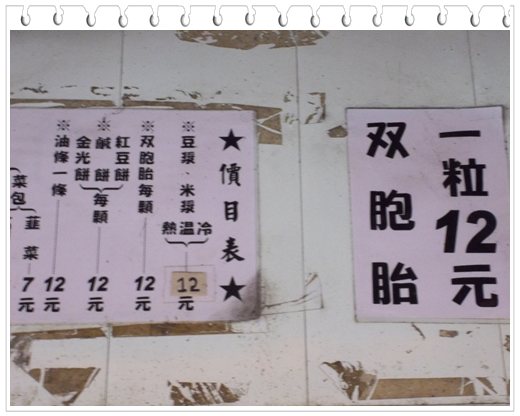 ★價目表★
※豆漿、米漿
熱溫冷
12元
※双胞胎每顆 12元
紅豆餅
※鹹餅
金光餅
每顆 12元
※油條一條 12元
韮菜 7元
菜包
一粒12元
双胞胎